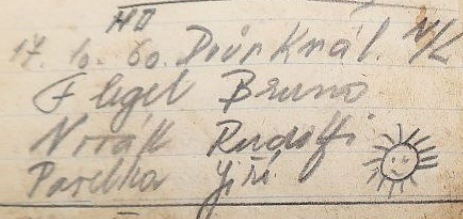 HO
17. 10. 60. Dvůr Král. N/L
Flegel Bruno
Novák Rudolf
Pavelka Jiří